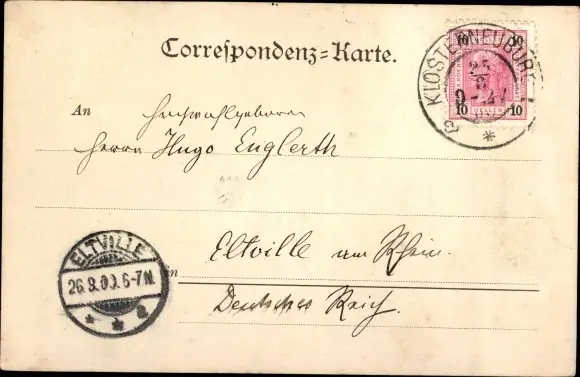 Correspondenz-Karte.
KLOSTERNEUBURG
25
9
10 10
10 HELLER 10
An Hochwohlgeboren
Herrn Hugo Englerth
Eltville am Rhein.
in
Deutsches Reich.
ELTVILLE
26.9.00.6-7N.
* * a